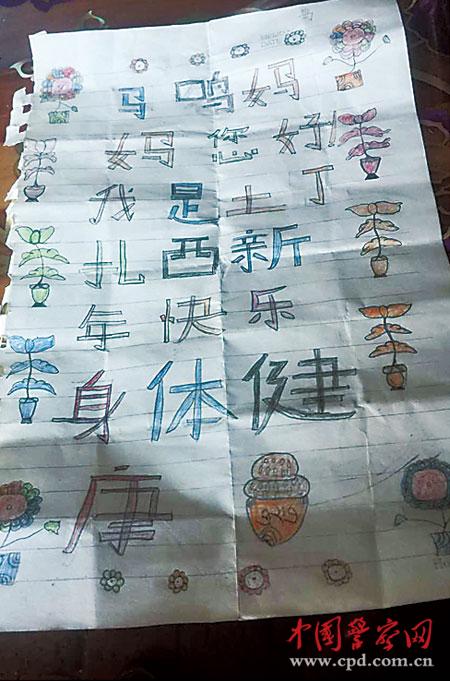 马鸣妈
妈您好!
我是土丁
扎西新
年快乐
身体健
康
中国警察网
www.cpd.com.cn